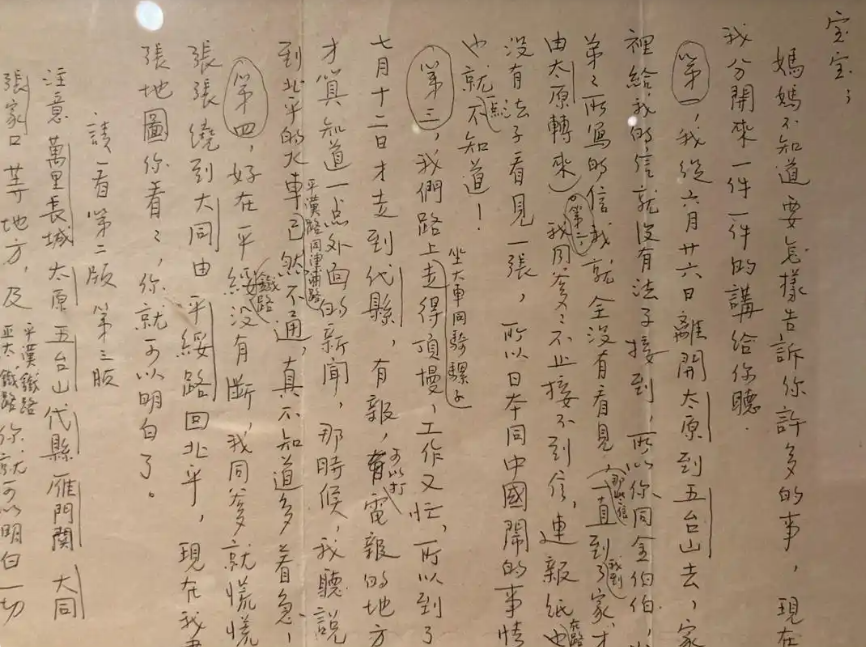 宝宝，
媽媽不知道要怎樣告訴你許多的事，現在
我分開來一件一件的講給你聽.
第一，我從六月廿六日離開太原到五台山去，家
裡給我的信就没有法子接到，所以你同金伯伯，
弟弟所寫的信我就全没有看見，（那些信一直到我到了家，才
由太原轉來）第二，我同爹爹不止接不到信，連報紙也在路
没有法子看見一張，所以日本同中國鬧的事情
也就一点不知道！
第三，我們路上坐大車同騎騾子走得頂慢，工作又忙，所以到了
七月十二日才走到代縣，有報，可以打電報的地方
才算知道一点外面的新聞，那時候，我聽説
到北平的火車，平漢路同津浦路已然不通，真不知道多着急，
第四，好在平綏鐵路没有斷，我同爹爹就慌慌
張張繞到大同由平綏路回北平，現在我畫
張地圖你看看，你就可以明白了。
請一看第二版 第三版
注意萬里長城 太原 五台山 代縣 雁門關 大同
張家口等地方，及平漢鐵路 正太鐵路 你就可以明白一切